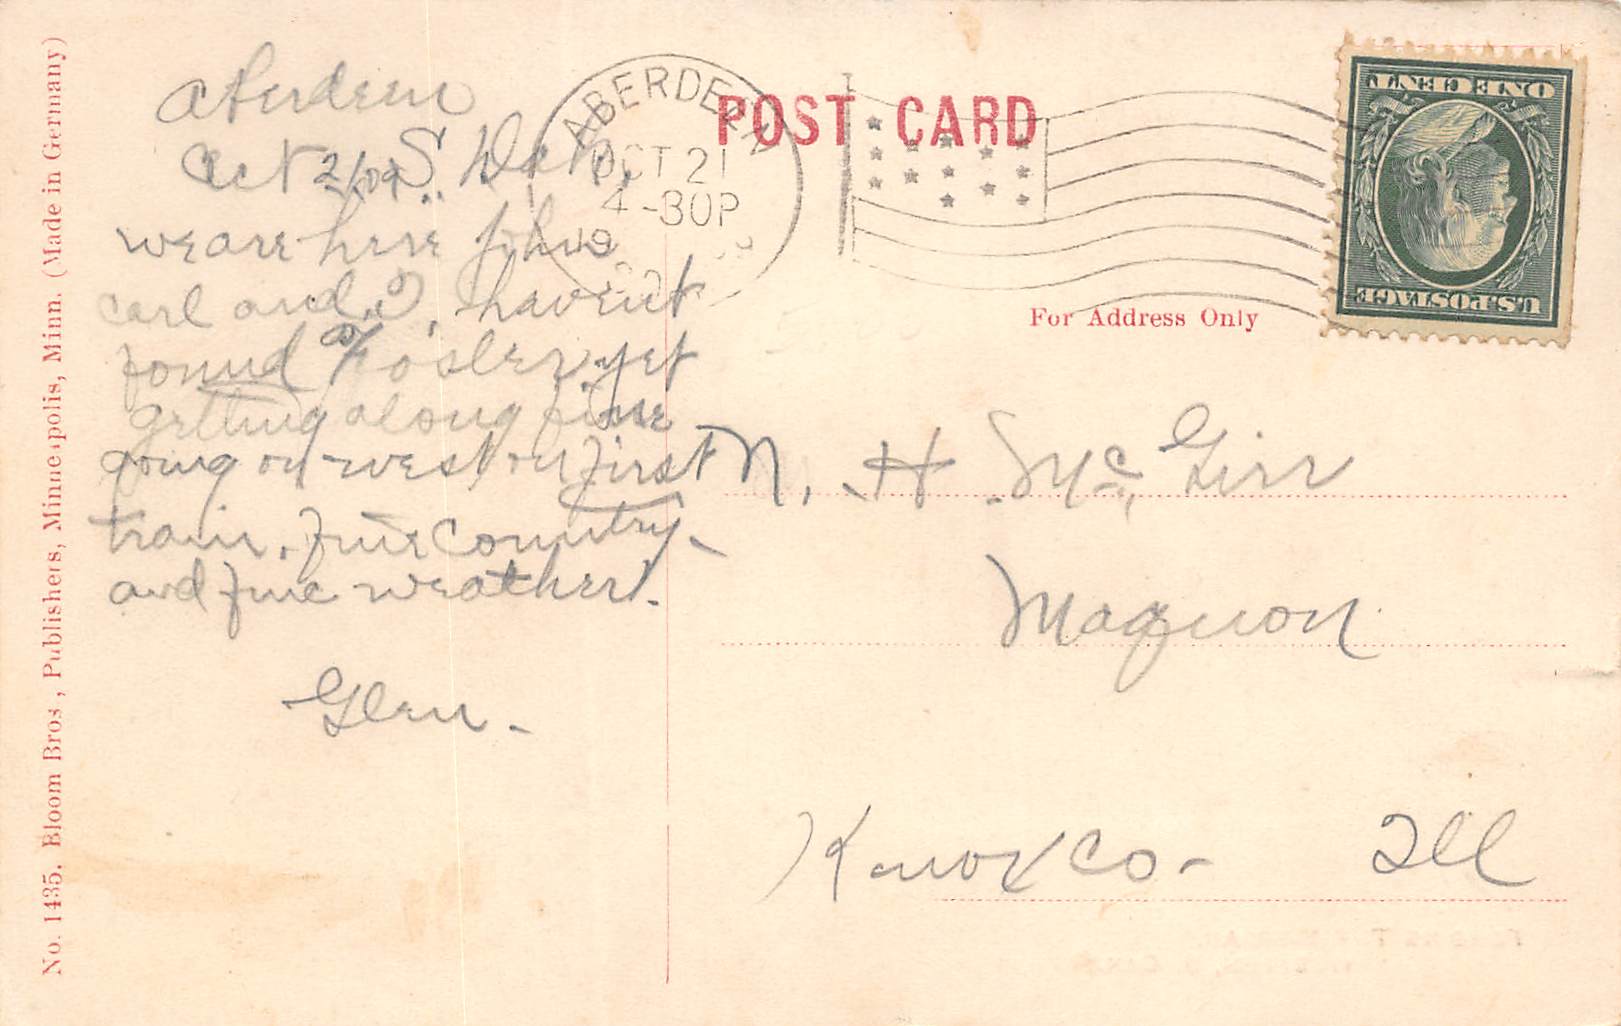 No. 1435. Bloom Bros., Publishers, Minneapolis, Minn. (Made in Germany)
POST CARD
For Address Only
ABERDEEN
OCT 21
4-30P
U.S. POSTAGE
ONE CENT
Aberdeen
Oct 21/09 S. Dak,
we are here John
Carl and I, havent
found Foster yet
getting along fine
going on west on first
train, fine country
and fine weather.
Glen -
N. H. Mc Girr
Maquon
Knox Co - Ill